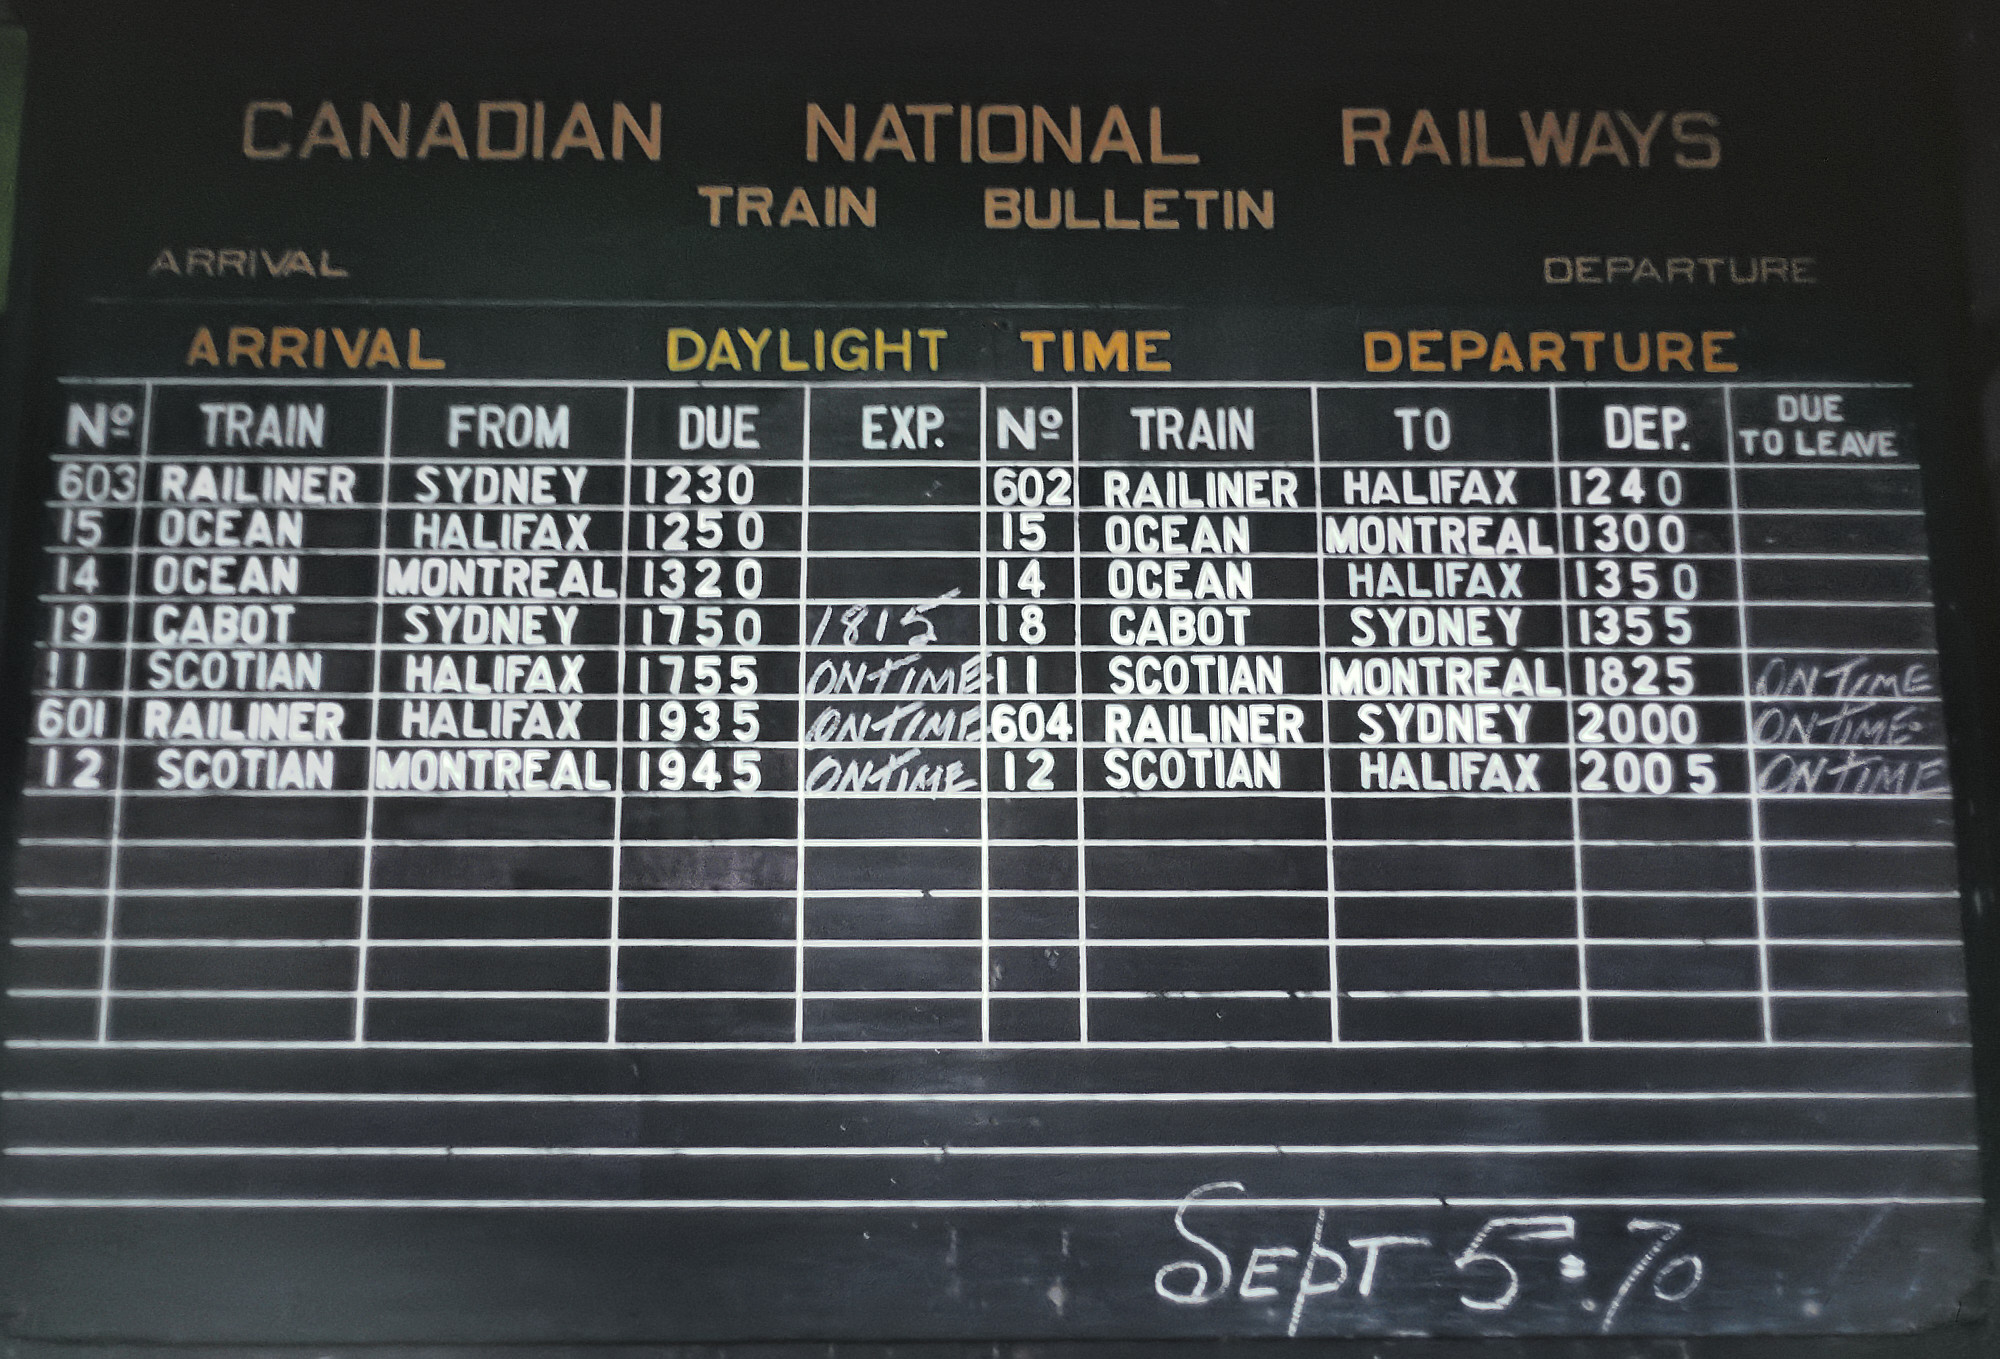 CANADIAN NATIONAL RAILWAYS
TRAIN BULLETIN
ARRIVAL DEPARTURE
ARRIVAL DAYLIGHT TIME DEPARTURE
Nº TRAIN FROM DUE EXP. Nº TRAIN TO DEP. DUE TO LEAVE
603 RAILINER SYDNEY 1230 602 RAILINER HALIFAX 1240
15 OCEAN HALIFAX 1250 15 OCEAN MONTREAL 1300
14 OCEAN MONTREAL 1320 14 OCEAN HALIFAX 1350
19 CABOT SYDNEY 1750 1815 18 CABOT SYDNEY 1355
11 SCOTIAN HALIFAX 1755 ON TIME 11 SCOTIAN MONTREAL 1825 ON TIME
601 RAILINER HALIFAX 1935 ON TIME 604 RAILINER SYDNEY 2000 ON TIME
12 SCOTIAN MONTREAL 1945 ON TIME 12 SCOTIAN HALIFAX 2005 ON TIME
SEPT 5:70